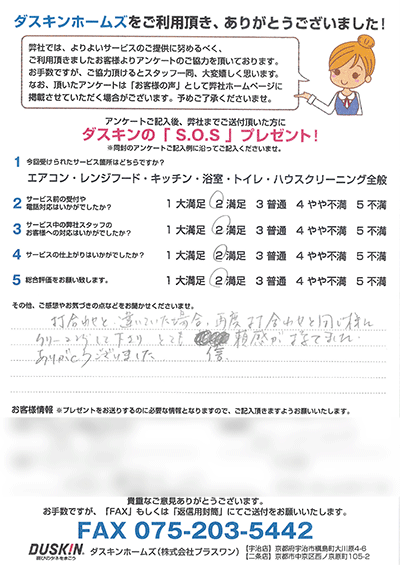 ダスキンホームズをご利用頂き、ありがとうございました！
弊社では、よりよいサービスのご提供に努めるべく、
ご利用頂きましたお客様よりアンケートのご協力を頂いております。
お手数ですが、ご協力頂けるとスタッフ一同、大変嬉しく思います。
なお、頂いたアンケートは「お客様の声」として弊社ホームページに
掲載させていただく場合がございます。予めご了承くださいませ。
アンケートご記入後、弊社までご送付頂いた方に
ダスキンの「 S.O.S 」プレゼント！
※同封のアンケートご記入例に沿ってご記入くださいませ。
1 今回受けられたサービス箇所はどちらですか？
エアコン・レンジフード・キッチン・浴室・トイレ・ハウスクリーニング全般
2 サービス前の受付や
電話対応はいかがでしたか？ 1 大満足 2 満足 3 普通 4 やや不満 5 不満
3 サービス中の弊社スタッフの
お客様への対応はいかがでしたか？ 1 大満足 2 満足 3 普通 4 やや不満 5 不満
4 サービスの仕上がりはいかがでしたか？ 1 大満足 2 満足 3 普通 4 やや不満 5 不満
5 総合評価をお願い致します。 1 大満足 2 満足 3 普通 4 やや不満 5 不満
その他、ご感想やお気づきの点などをお聞かせくださいませ。
打合わせと違いていた場合、再度打合わせと同じ様に
クリーニングして下さり とても 頼感が持てました。
ありがとうございました 信
お客様情報 ※プレゼントをお送りするのに必要な情報となりますので、ご記入頂きますようお願いいたします。
貴重なご意見ありがとうございます。
お手数ですが、「FAX」もしくは「返信用封筒」にてご送付をお願いいたします。
FAX 075-203-5442
DUSKIN 喜びのタネをまこう ダスキンホームズ（株式会社プラスワン） 【宇治店】京都府宇治市槇島町大川原4-6
【二条店】京都市中京区西ノ京原町105-2